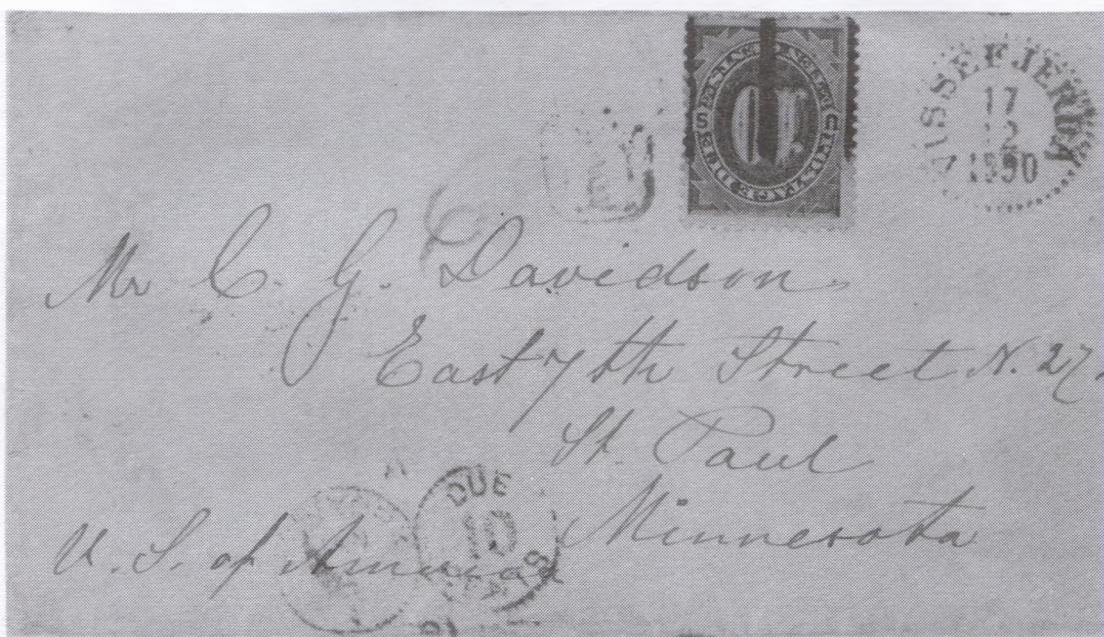 VISSEFJERDA
17
12
1890
T
10
Mr C. G. Davidson
East 7th Street N. 27
St. Paul
Minnesota
U. S. of America
DUE
10
CENTS